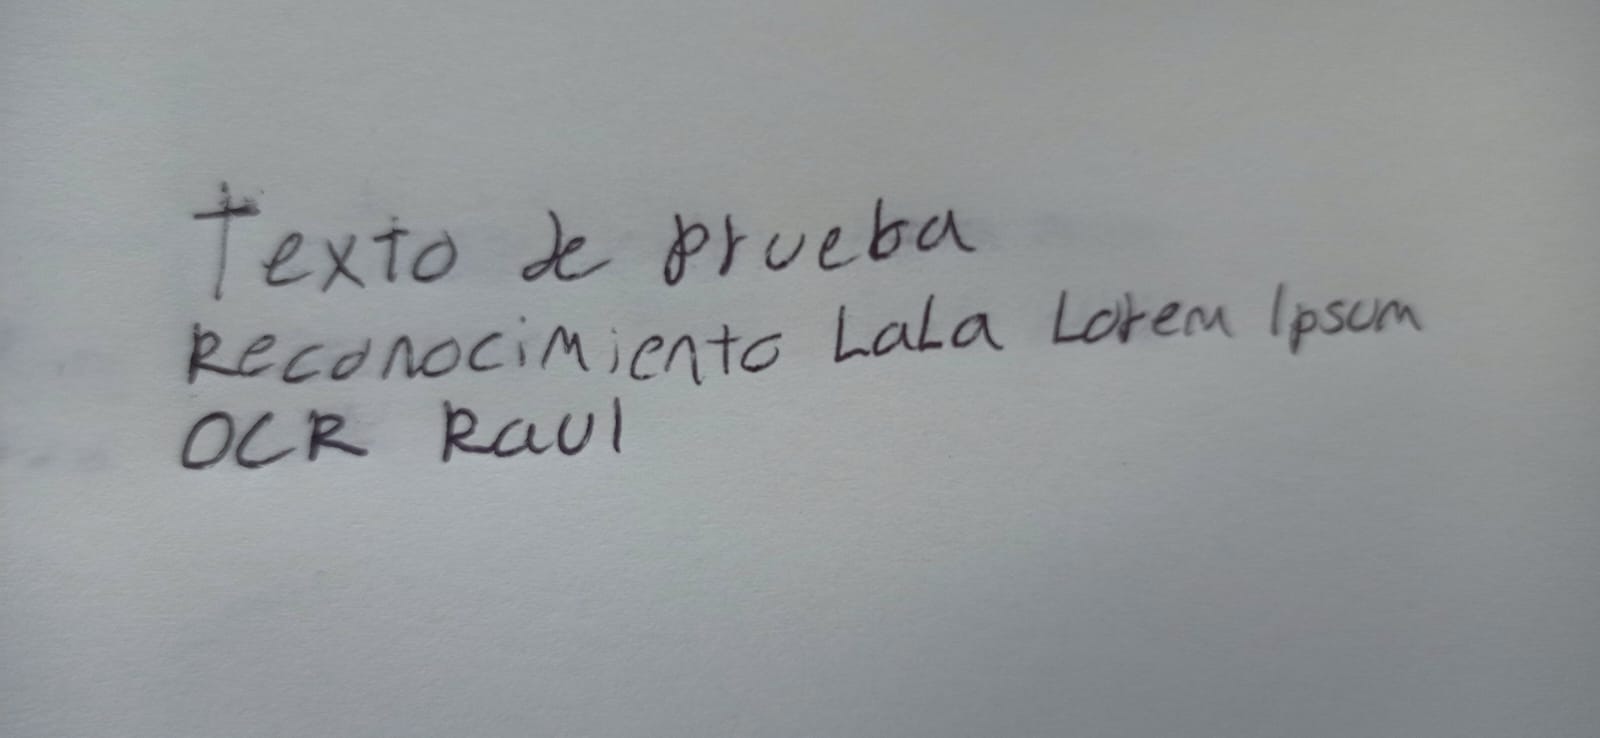 Texto de prueba
Reconocimiento LaLa Lorem Ipsum
OCR Raul